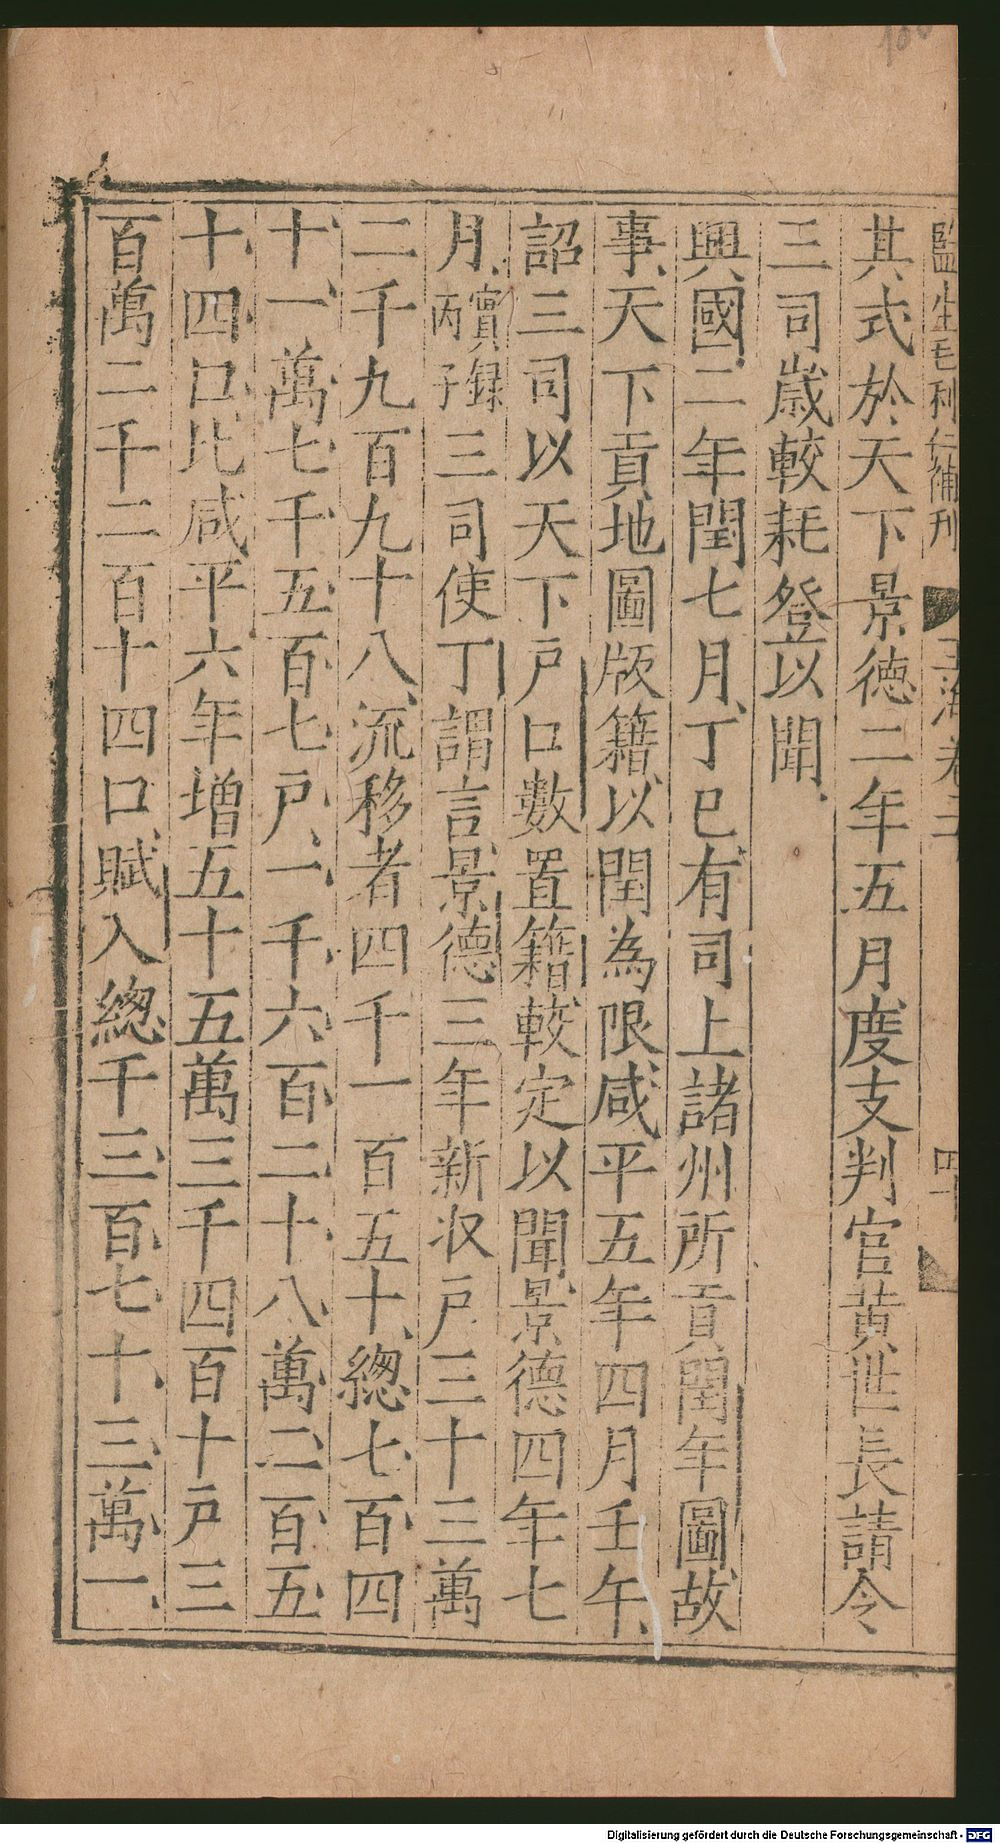 其式於天下景德二年五月度支判官黄世長請令
三司歳較耗登以聞
興國二年閏七月丁巳有司上諸州所貢閏年圖故
事天下貢地圖版籍以閏為限咸平五年四月壬午
詔三司以天下戸口數置籍較定以聞景德四年七
月實録丙子三司使丁謂言景德三年新収戸三十三萬
二千九百九十八流移者四千一百五十總七百四
十一萬七千五百七戸一千六百二十八萬二百五
十四口比咸平六年增五十五萬三千四百十戸三
百萬二千二百十四口賦入總千三百七十三萬一
Digitalisierung gefördert durch die Deutsche Forschungsgemeinschaft - DFG